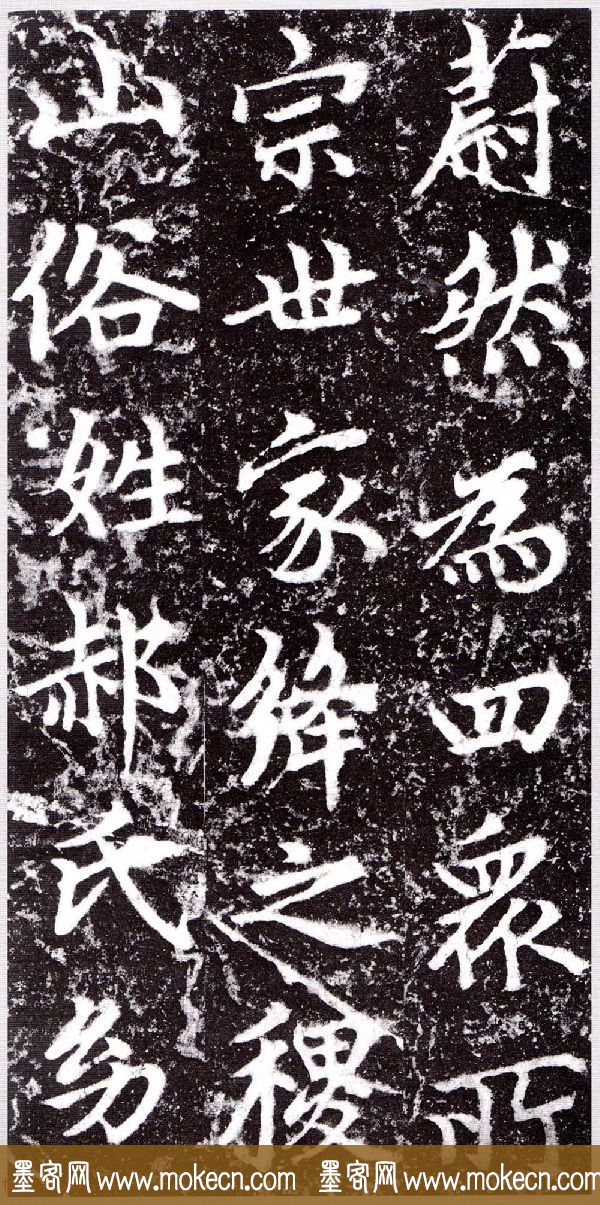 蔚然為四衆所
宗世家絳之稷
山俗姓郝氏㓜
墨客网 www.mokecn.com 墨客网 www.mokecn.com